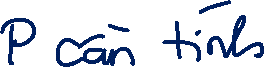 P cần tính